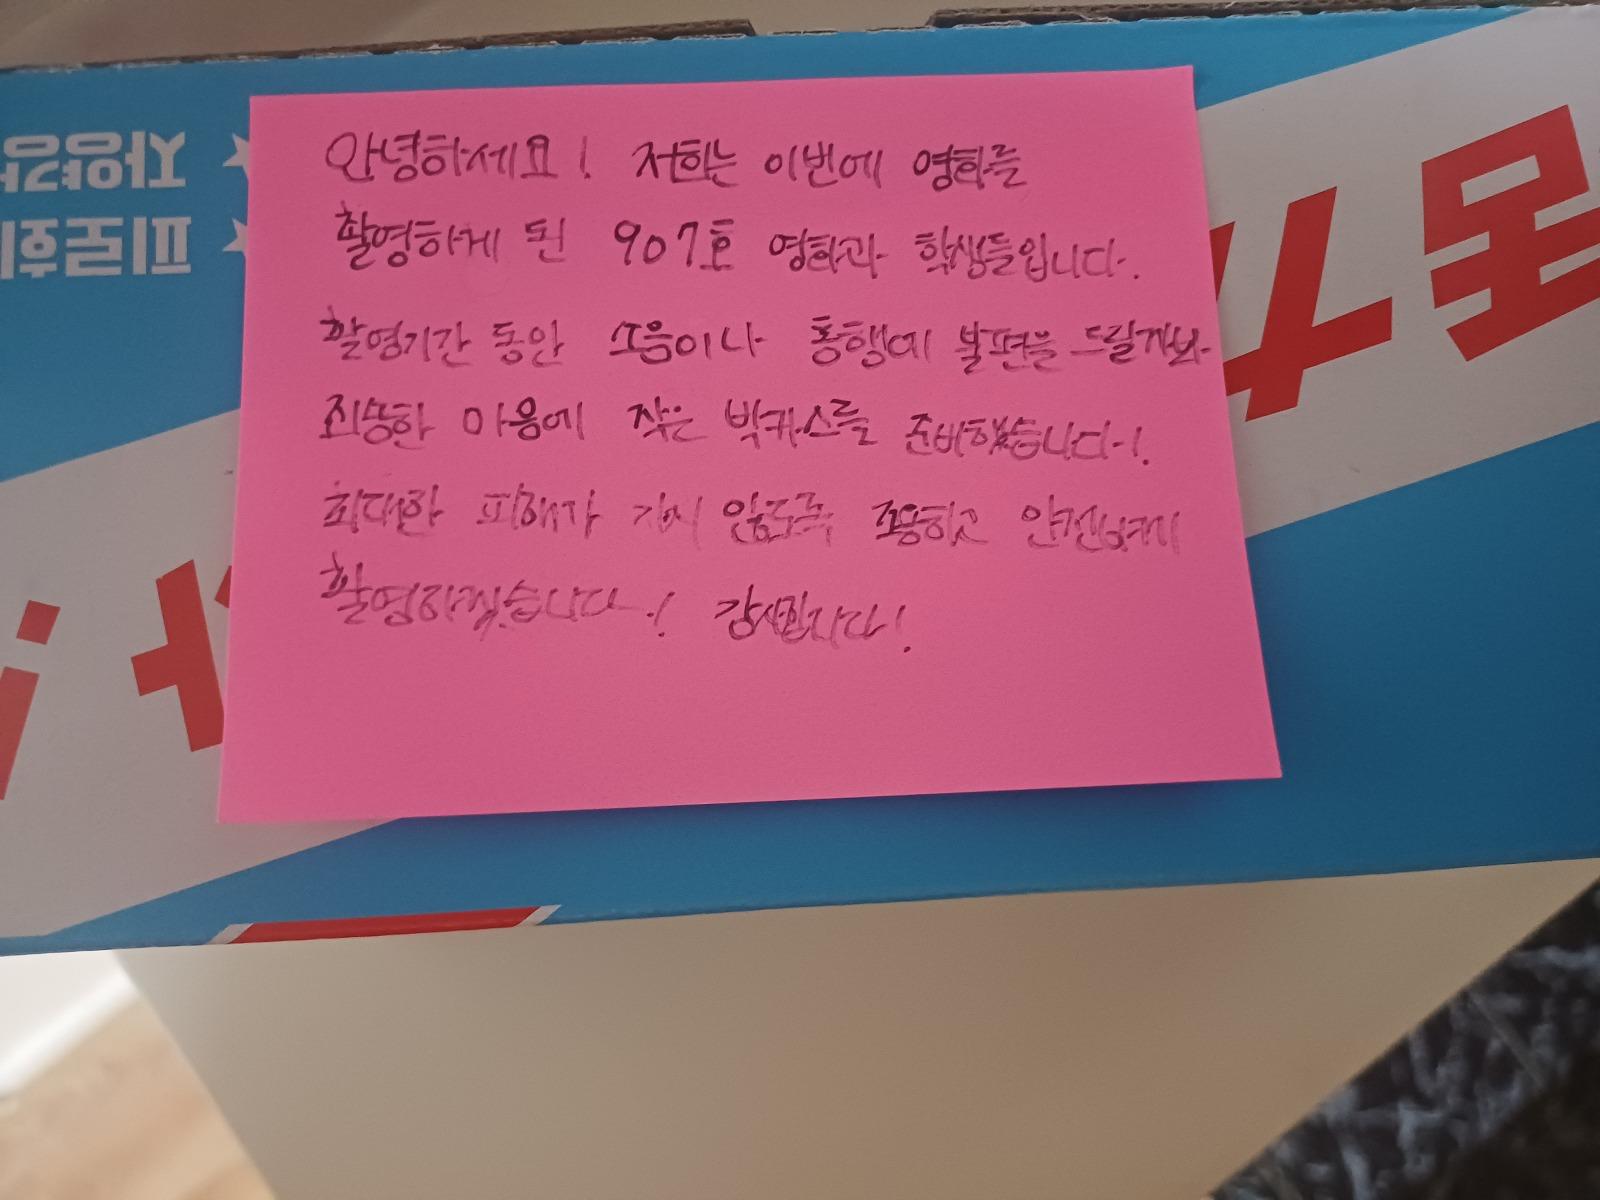 안녕하세요! 저희는 이번에 영화를
촬영하게 된 907호 영화과 학생들입니다.
촬영기간 동안 소음이나 통행에 불편을 드릴까봐
죄송한 마음에 작은 박카스를 준비했습니다!
최대한 피해가 가지 않도록 조용하고 안전하게
촬영하겠습니다! 감사합니다!
자양강
피로회